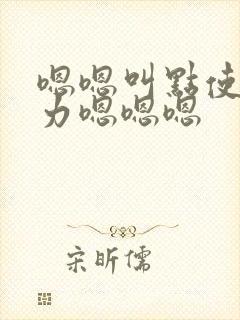 嗯嗯叫點使
力嗯嗯嗯
宋昕儒